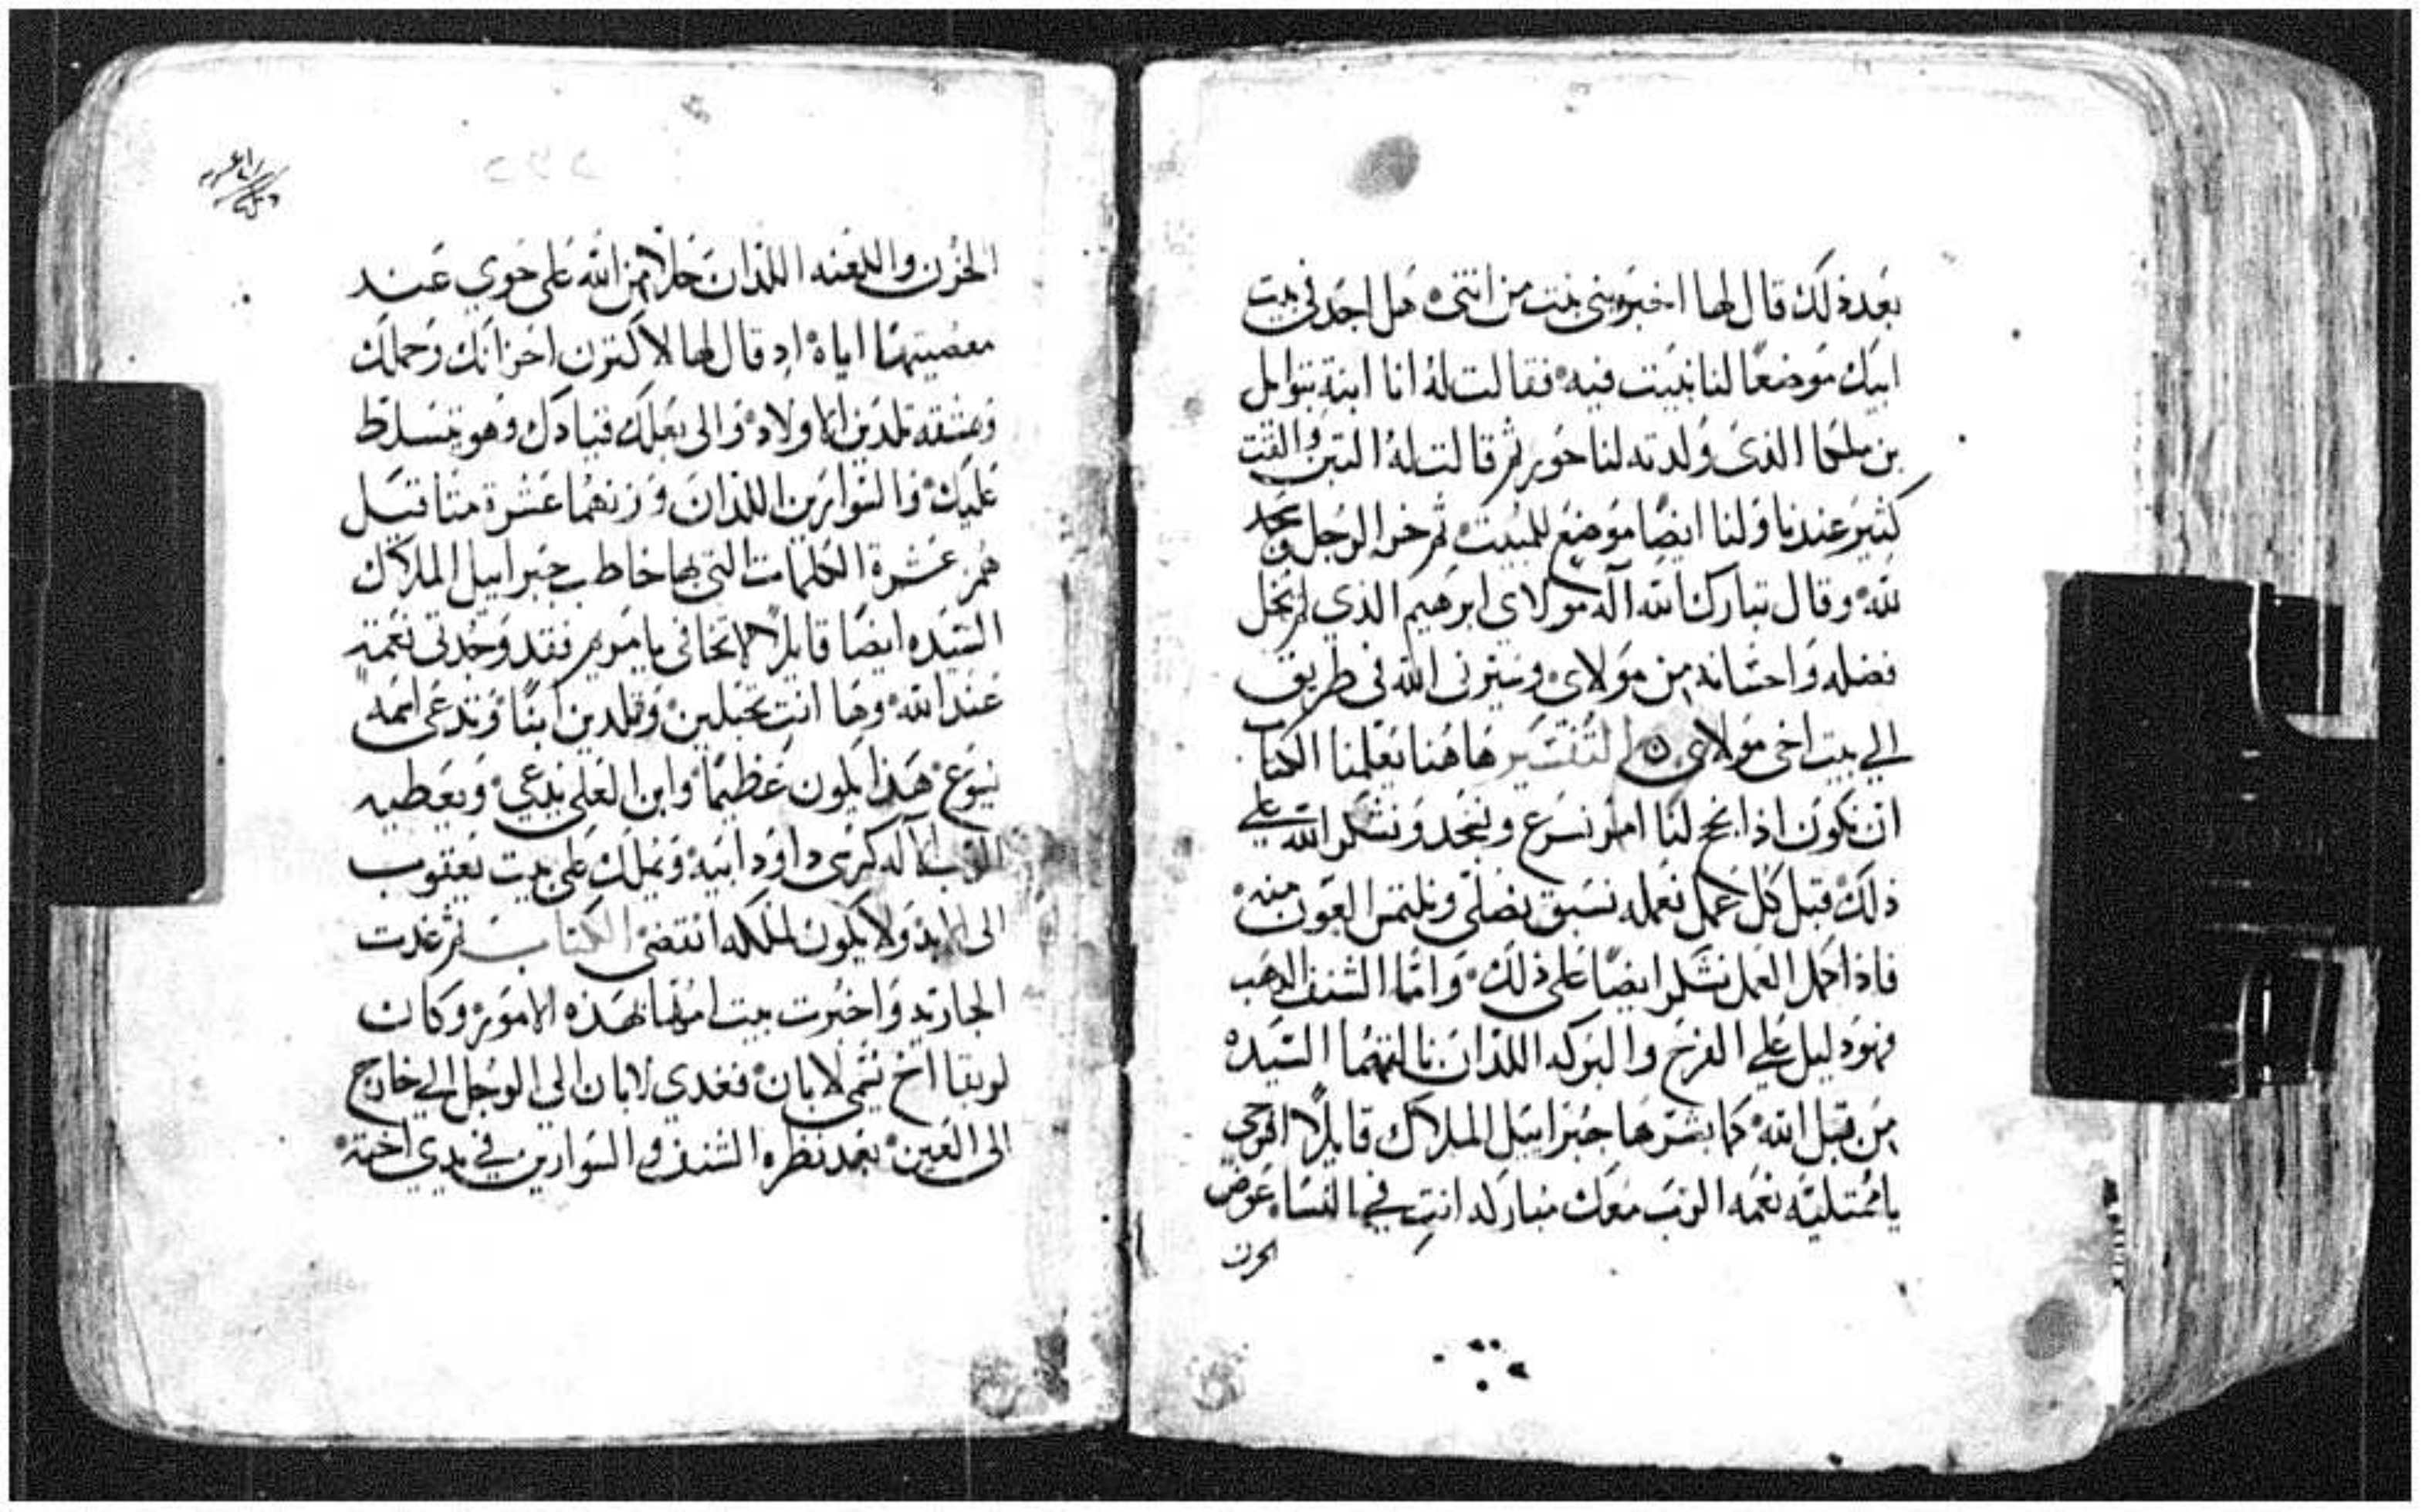 بعد ذلك قال لها اخبريني بنت من انتي هل اجد في بيت
ابيك موضعًا لنا نبيت فيه فقالت له انا ابنة بتوايل
بن ملحا الذي ولدته لنا حور ثم قالت له التبن والقت
كثير عندنا ولنا ايضًا موضع للمبيت ثم خر الرجل وسجد
لله وقال تبارك الله اله مولاي ابرهيم الذي لم يخل
فضله واحسانه من مولاي وسيرني الله في طريق
الي بيت اخي مولاي التفسير هاهنا يعلمنا الكتاب
ان نكون اذا نجح لنا امر نسرع ونسجد ونشكر الله علي
ذلك قبل كل عمل نعمله نسبق نصلي ونلتمس العون منه
فاذا كمل العمل نشكر ايضًا على ذلك واما الشنف الدهب
فهو دليل علي الفرح والبركه اللذان نالتهما السيده
من قبل الله كما بشرها جبراييل الملاك قايلًا افرحي
يا ممتليه نعمه الرب معك مباركه انتِ في النساء عوض
الحزن
الحزن واللعنه اللذان حلا من الله على حوي عند
معصيتها اياه اد قال لها لاكترن احزانك وحملك
وبمشقه تلدين الاولاد والى بعلك قيادك وهو يتسلط
عليك والسوارين اللذان وزنهما عشرة مثاقيل
هم عشرة الكلمات التي بها خاطب جبراييل الملاك
السيده ايضًا قايلًا لا تخافي يا مريم فقد وجدتي نعمة
عند الله وها انت تحبلين وتلدين ابنًا وتدعى اسمه
يسوع هذا يكون عظيمًا وابن العلي يدعي ويعطيه
الرب الاله كرسي داود ابيه ويملك على بيت يعقوب
الى الابد ولا يكون لملكه انقضى الكتاب ثم غدت
الجاريه واخبرت بيت امها بهذه الامور وكان
لربقا اخ يسمي لابان فغدي لابان الي الرجل الي خارج
الى العين بعد نظره الشنف والسوارين في يدي اخته